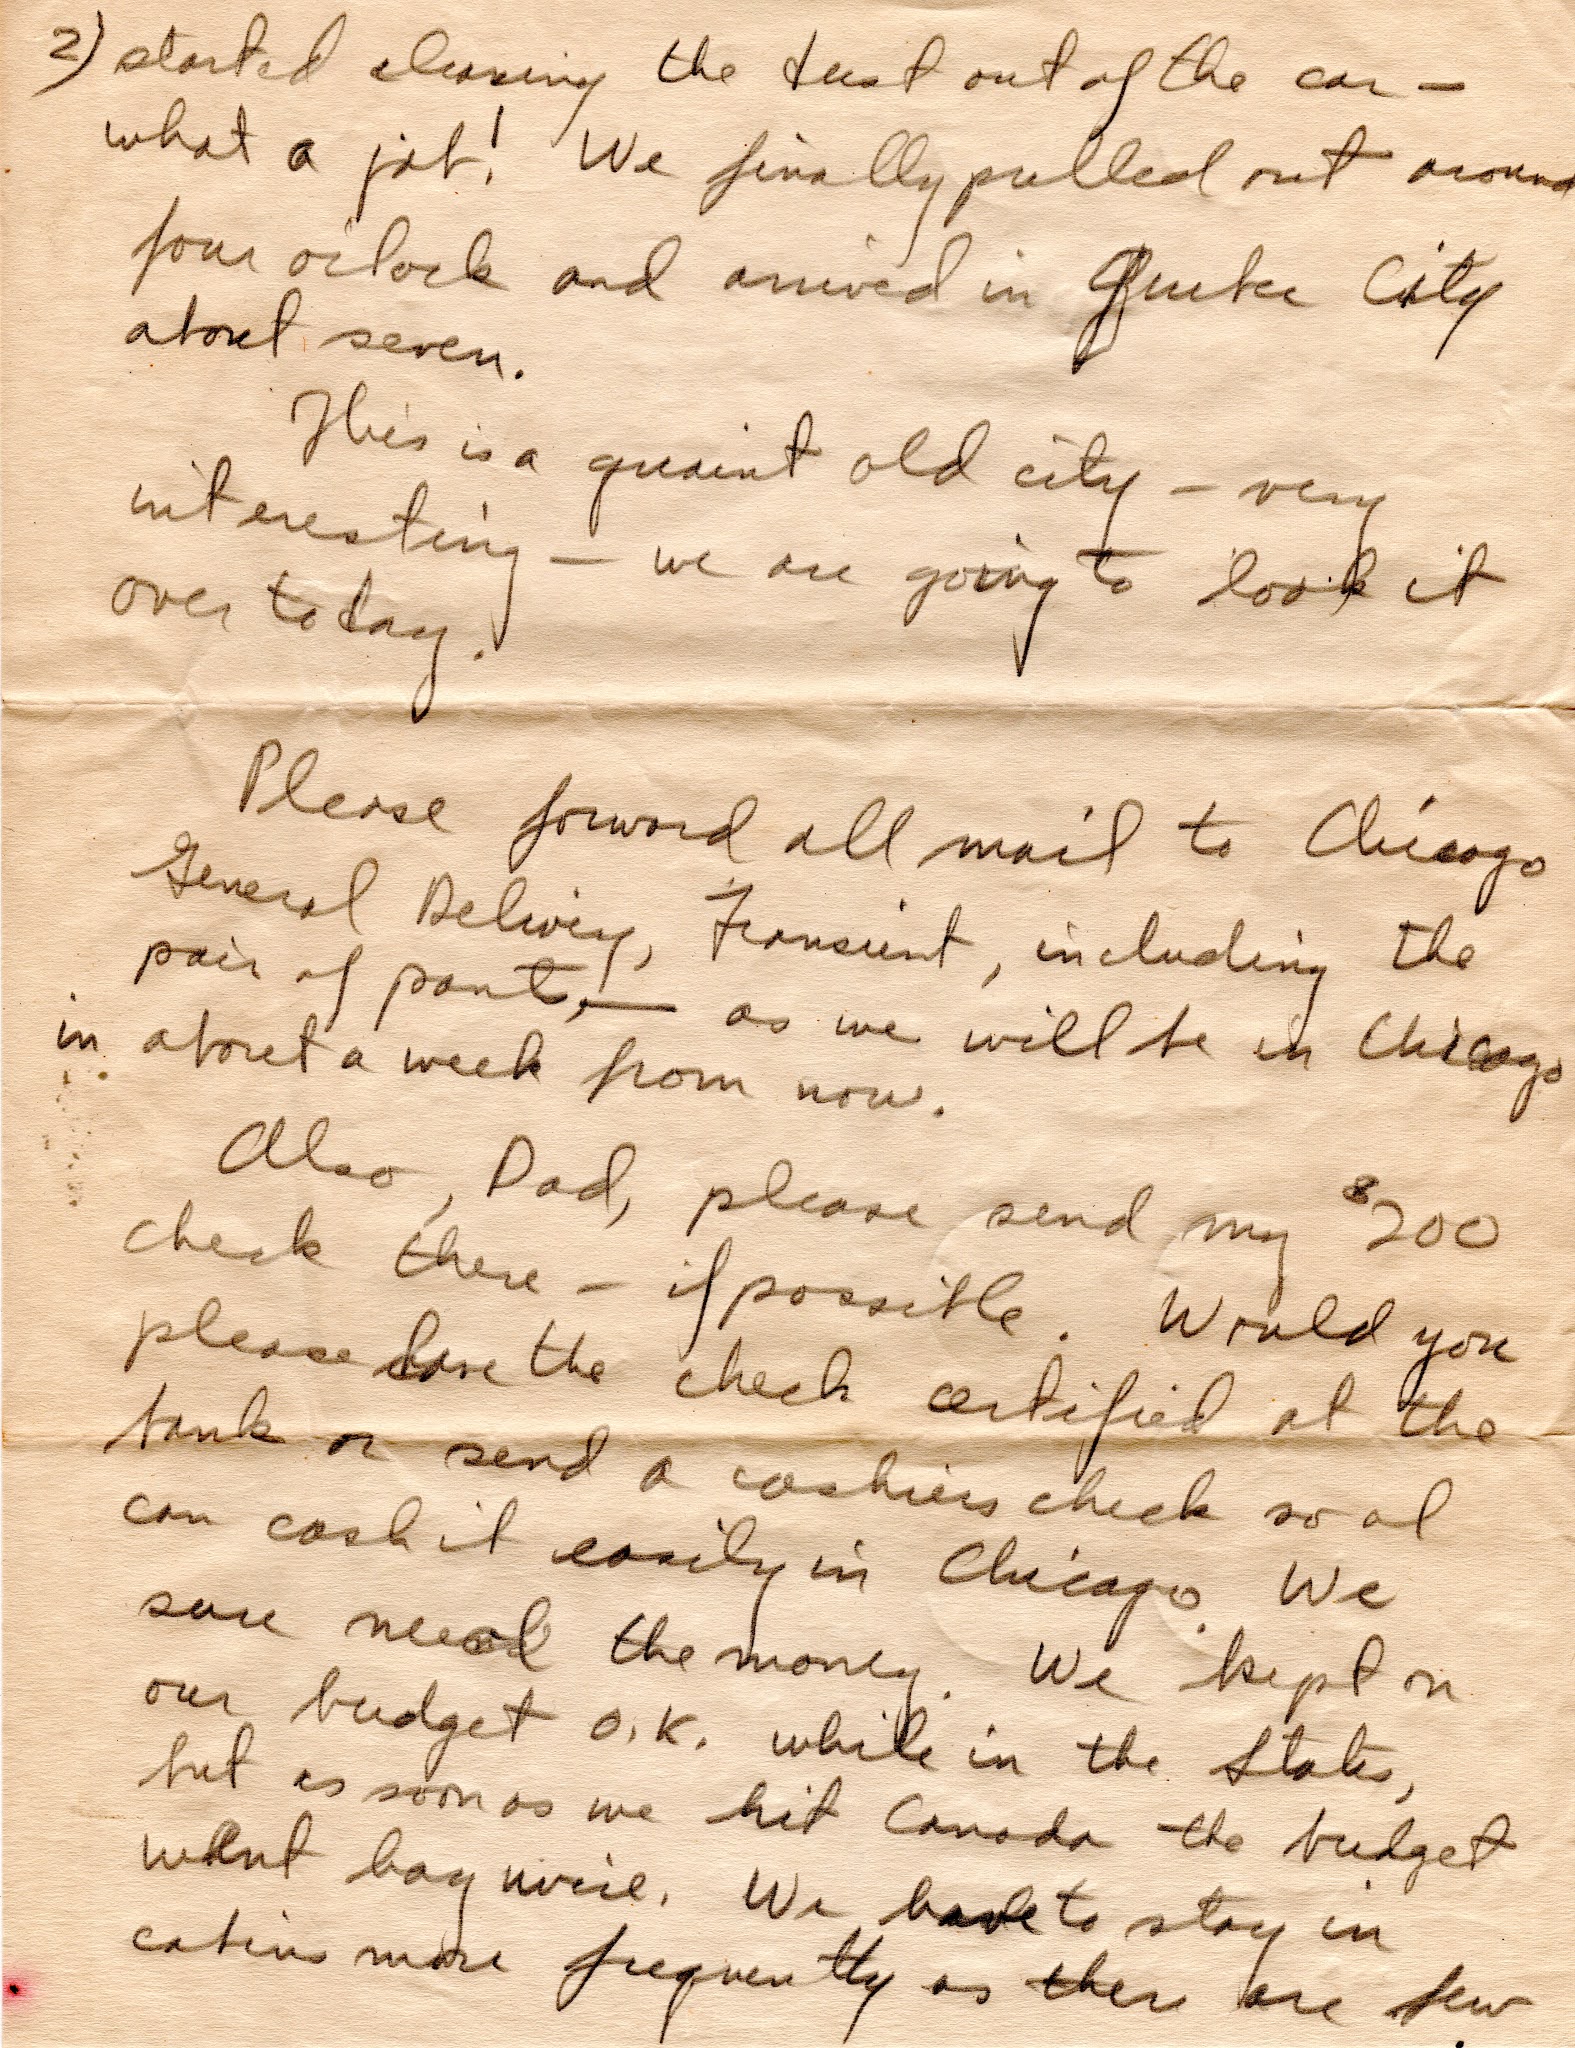 2) started cleaning the dust out of the car —
what a job! We finally pulled out around
four o'clock and arrived in Quebec City
about seven.
This is a quaint old city — very
interesting — we are going to look it
over today.
Please forward all mail to Chicago
General Delivery, Transient, including the
pair of pants, — as we will be in Chicago
in about a week from now.
Also, Dad, please send my $200
check there — if possible. Would you
please have the check certified at the
bank or send a cashiers check so I
can cash it easily in Chicago. We
sure need the money. We kept on
our budget O.K. while in the States,
but as soon as we hit Canada the budget
went haywire. We have to stay in
cabins more frequently as there are few